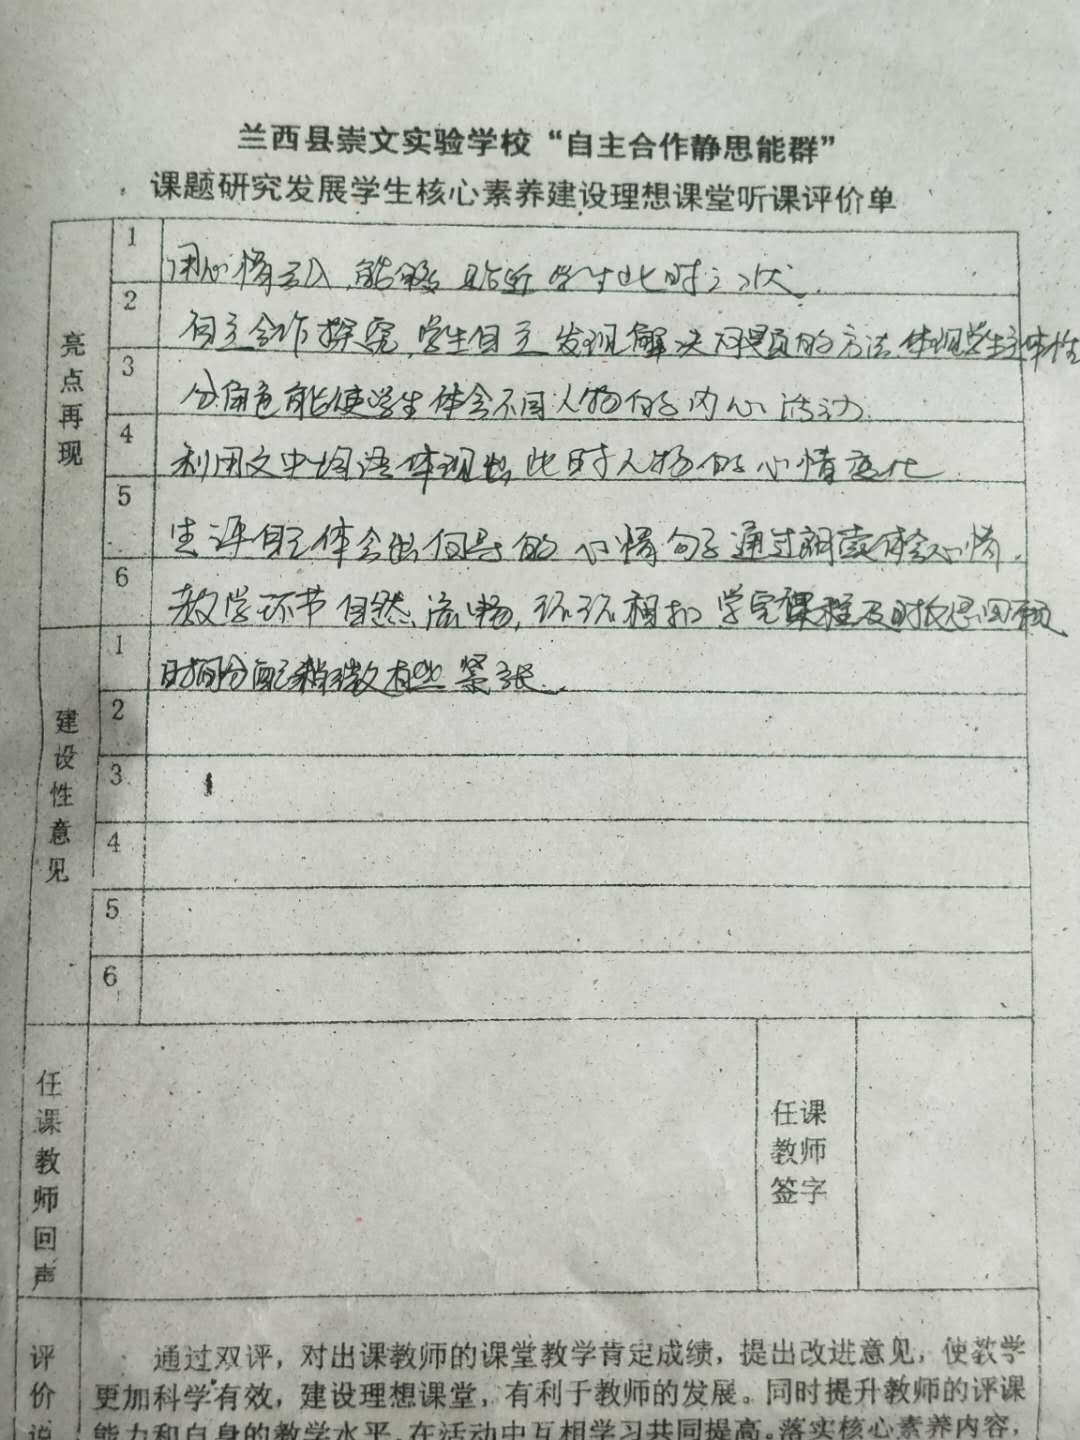 兰西县崇文实验学校“自主合作静思能群”
课题研究发展学生核心素养建设理想课堂听课评价单
亮点再现
1 用心情引入，能够贴近学生此时之状.
2 自主合作探究，学生自主发现解决问题的方法.体现学生主体性
3 分角色能使学生体会不同人物的内心活动.
4 利用文中词语体现出此时人物的心情变化.
5 生评自主体会出的心情句子通过朗读体会心情.
6 教学环节自然流畅，环环相扣 学完课程及时反思回顾
建设性意见
1 时间分配稍微有些紧张.
2
3
4
5
6
任课教师回声
任课
教师
签字
评价说
通过双评，对出课教师的课堂教学肯定成绩，提出改进意见，使教学
更加科学有效，建设理想课堂，有利于教师的发展。同时提升教师的评课
能力和自身的教学水平，在活动中互相学习共同提高。落实核心素养内容，